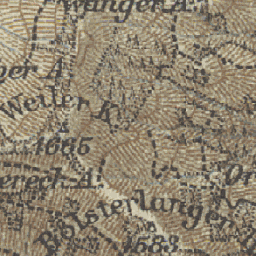 wanger A.
per A.
Weiler K.
1665
ereck-A.
Or
Bolsterlanger
1583